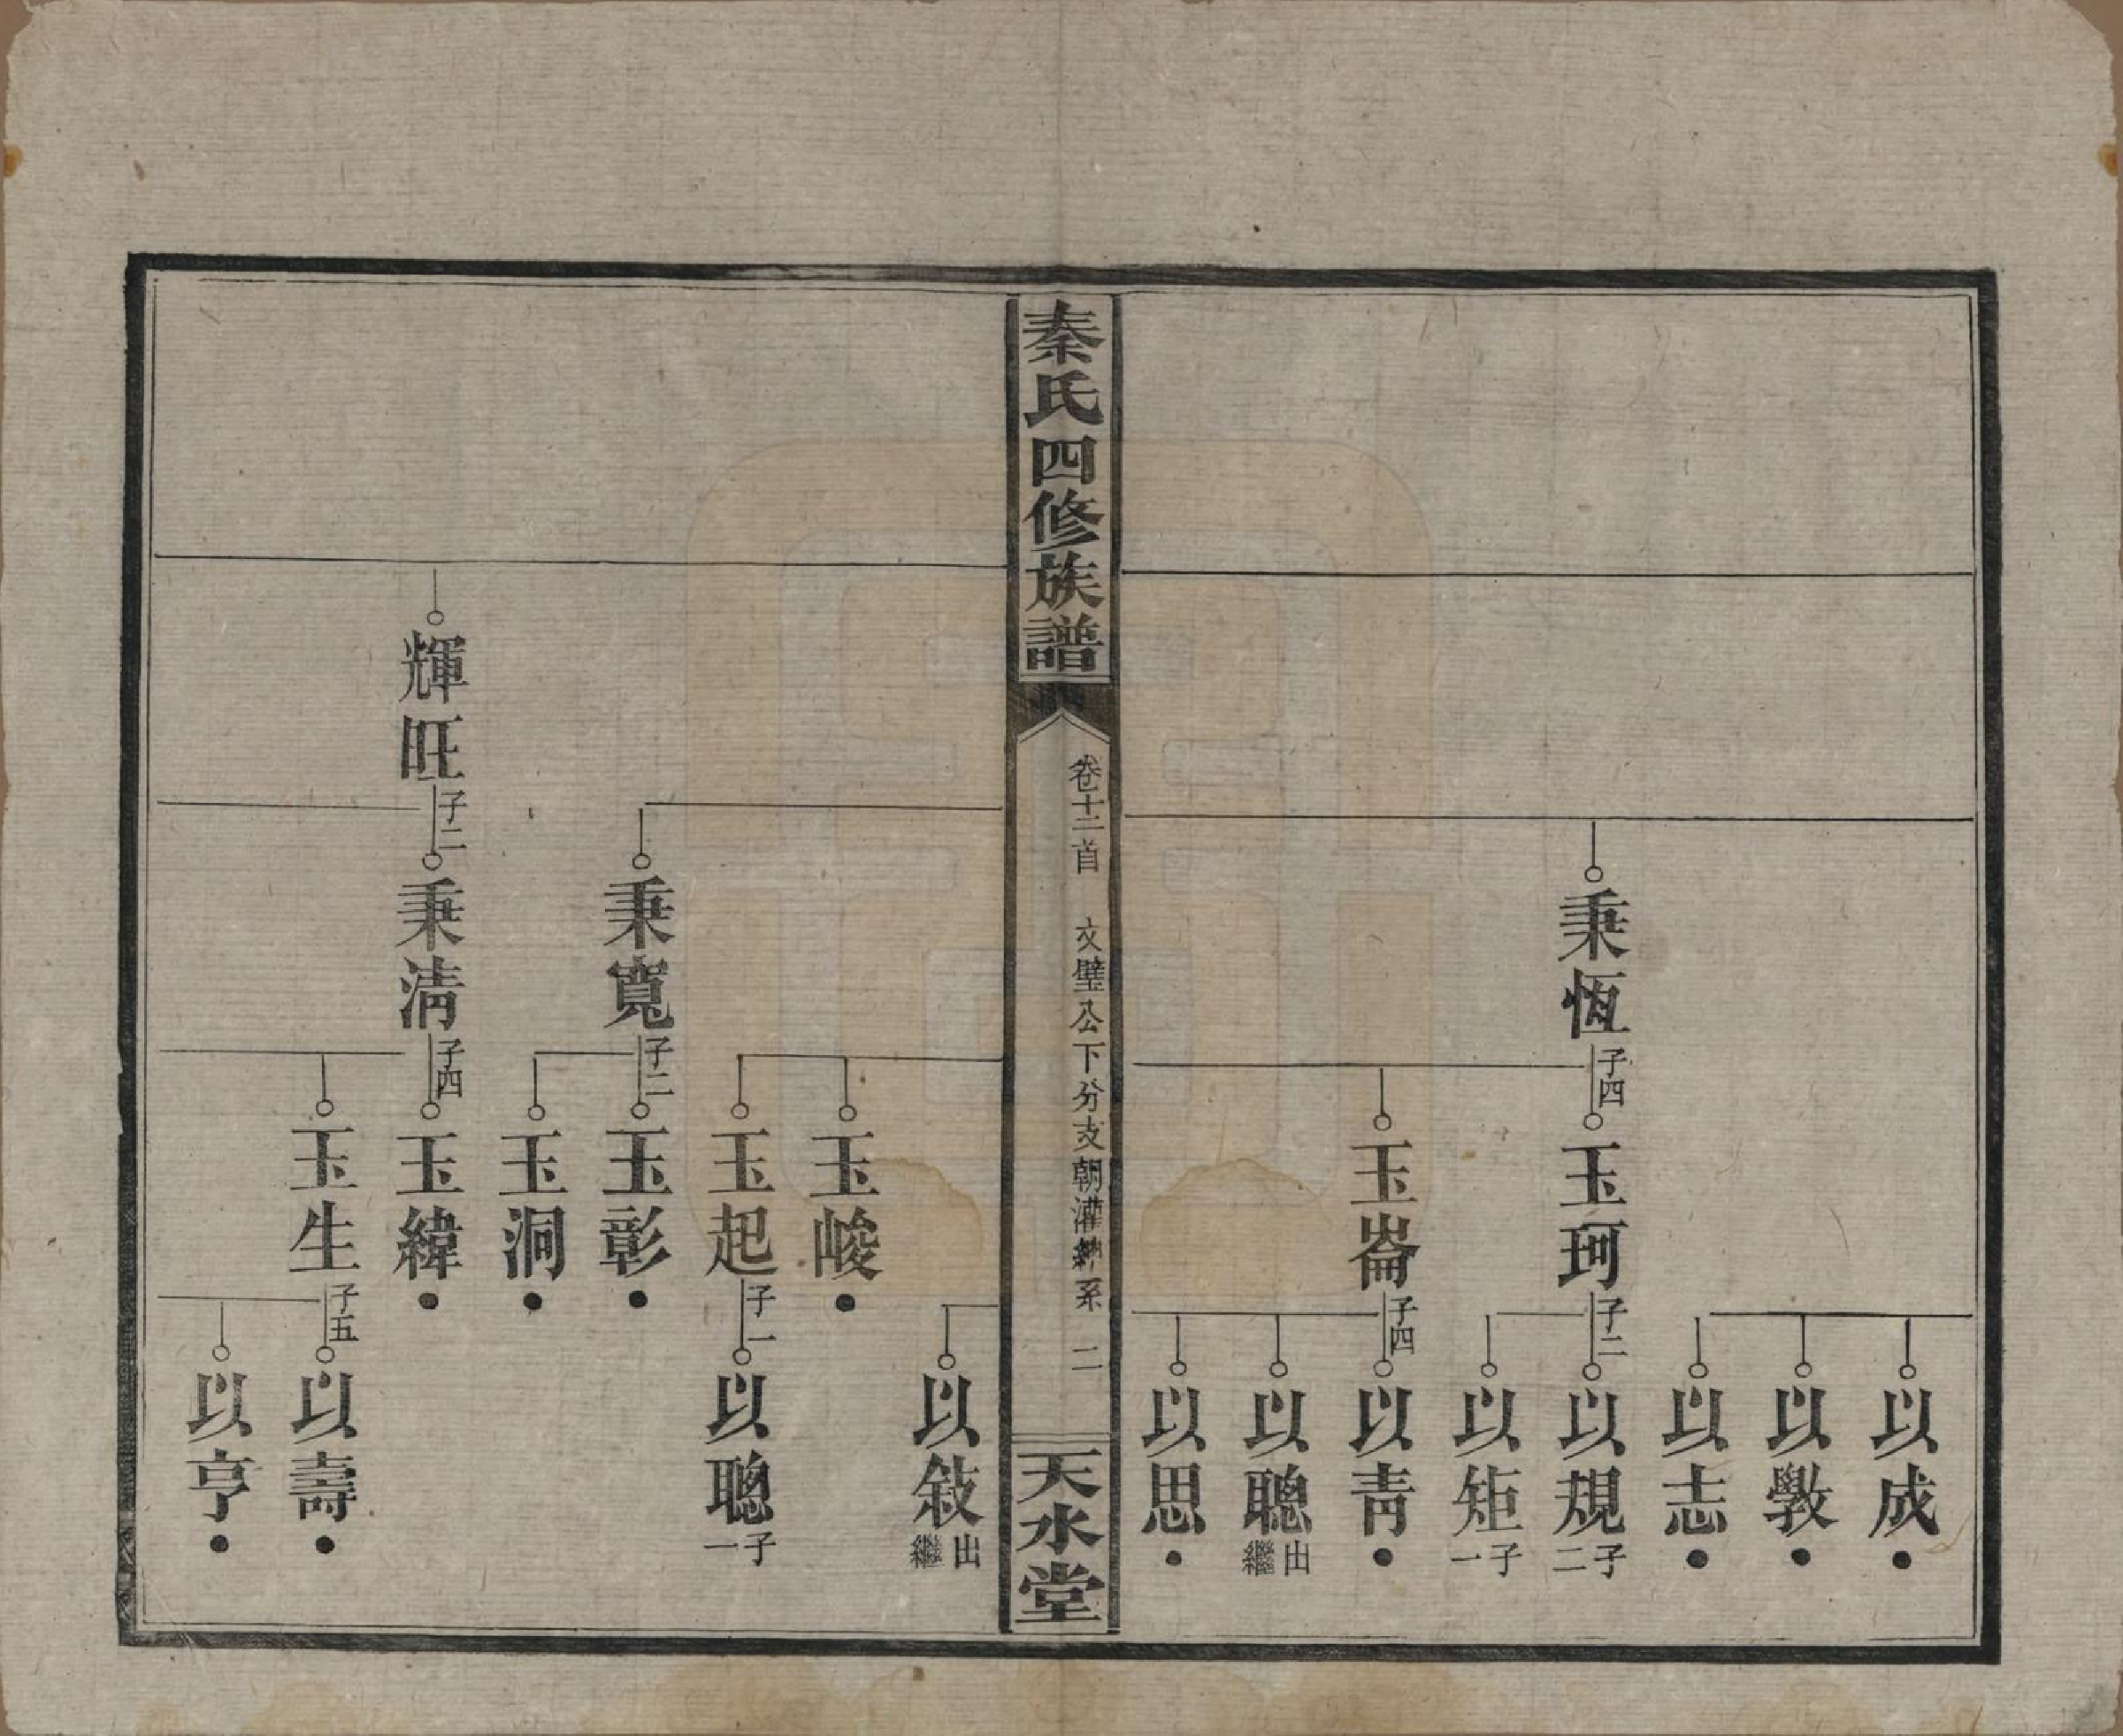 以成
以斆
以志
秉恆 子四
玉珂 子二
以規 子二
以矩 子一
玉崙 子四
以靑
以聰 出繼
以思
秦氏四修族譜
卷十二首
文璧公下分支朝灌 系
二
天水堂
以敍 出繼
玉峻
玉起 子一
以聰 子一
秉寬 子二
玉彰
玉洞
輝旺 子二
秉淸 子四
玉緯
玉生 子五
以壽
以亨